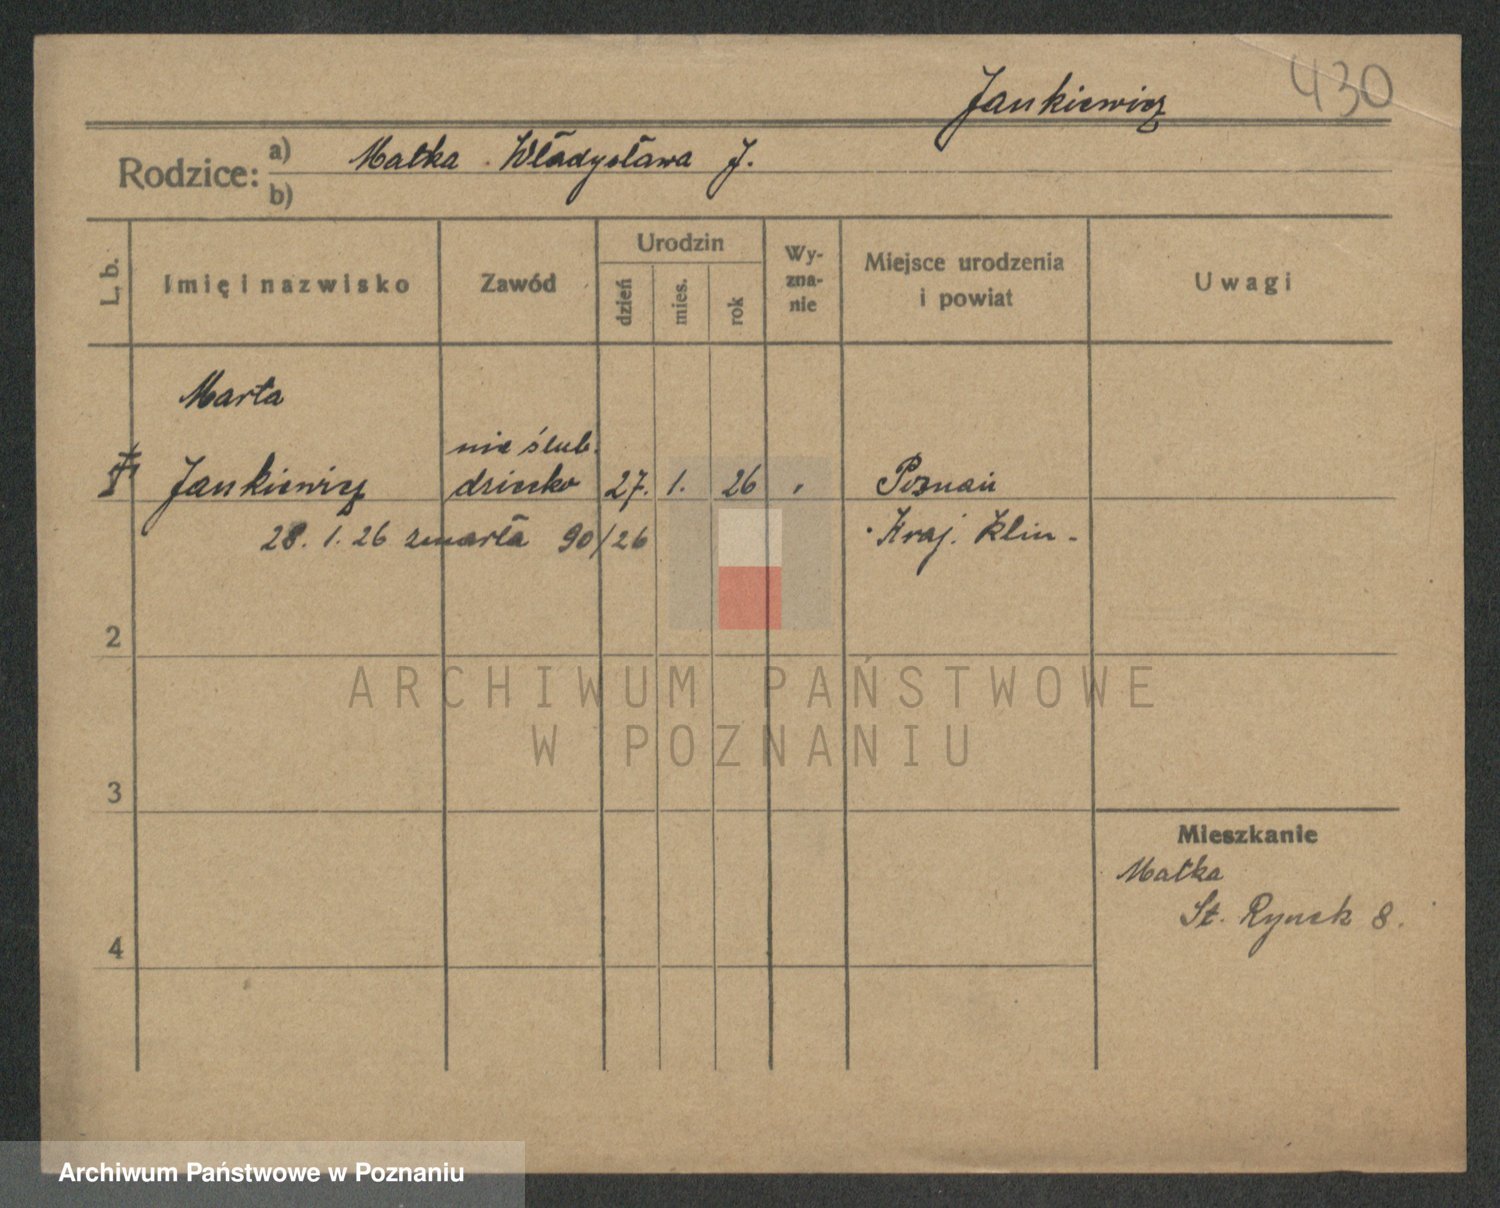 430
Jankiewicz
Rodzice: a) Matka Władysława J.
b)
L. b. Imię i nazwisko Zawód Urodzin dzień mies. rok Wy-zna-nie Miejsce urodzenia i powiat Uwagi
Marta
nie ślub.
Jankiewicz dziecko 27. 1. 26 Poznań
28. 1. 26 zmarła 90/26 Kraj. Klin-
2
ARCHIWUM PAŃSTWOWE
W POZNANIU
3
Mieszkanie
Matka
St. Rynek 8.
4
Archiwum Państwowe w Poznaniu